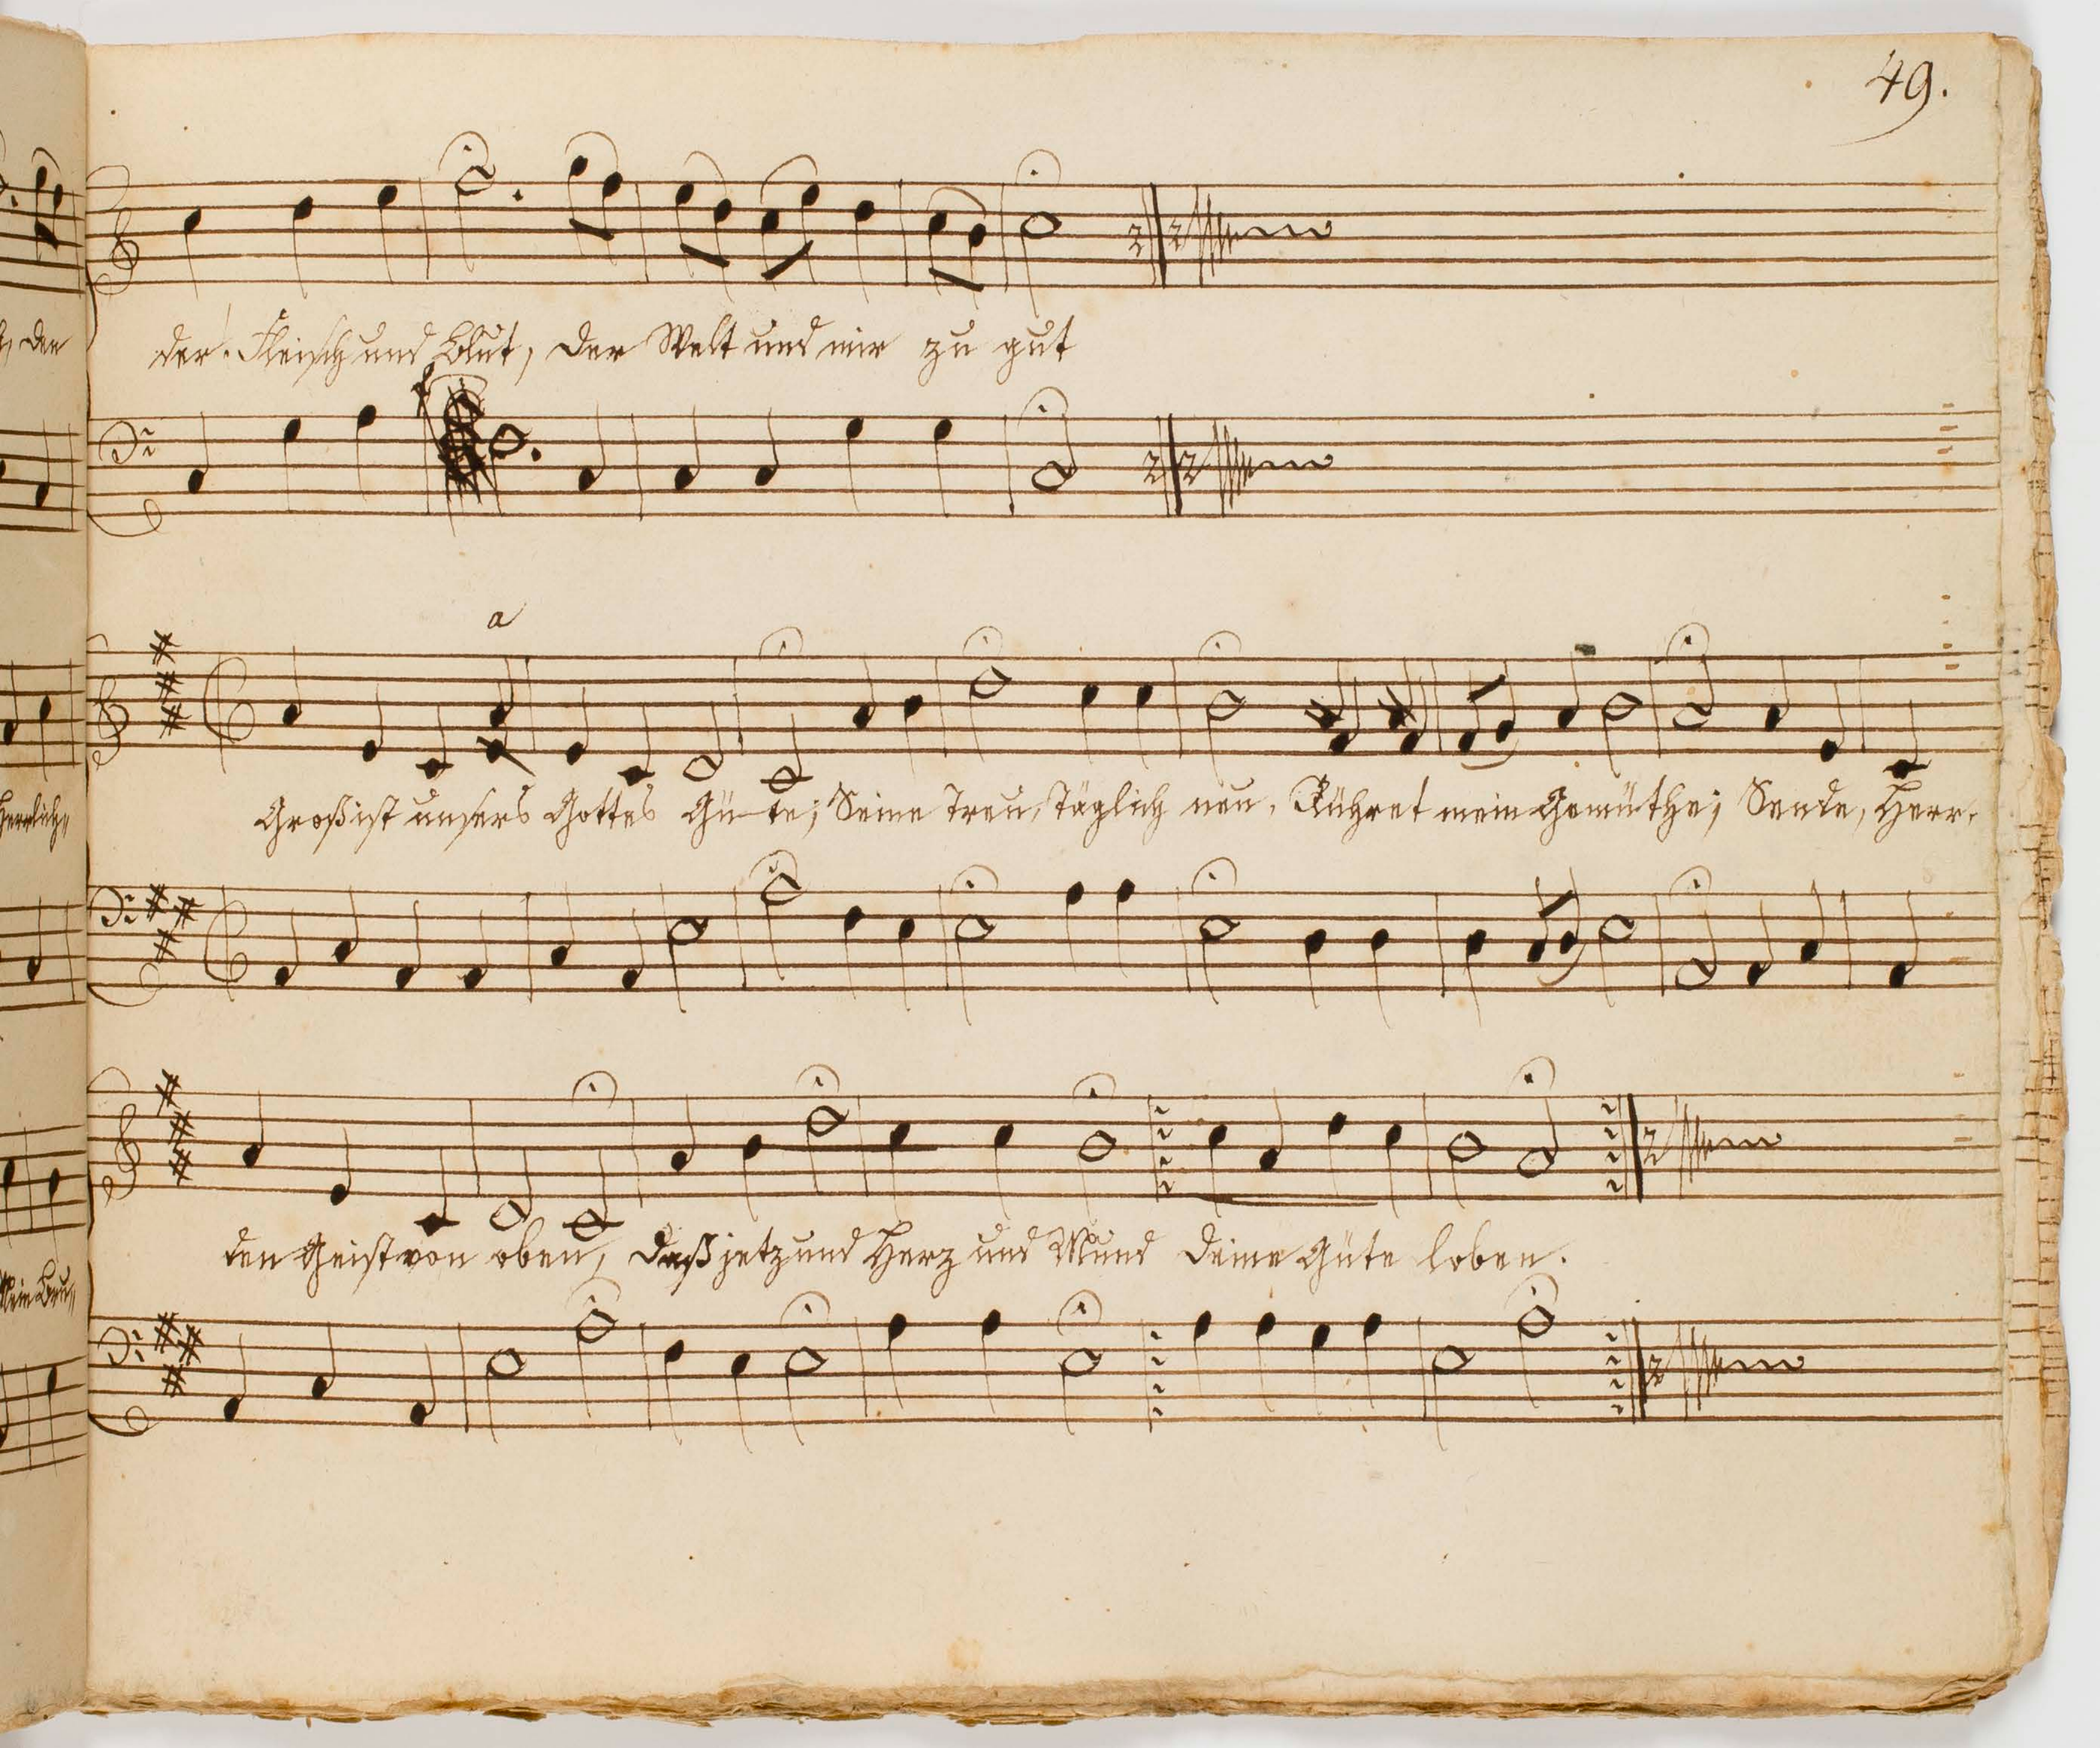 49.
den
der. Fleisch und Blut, der Welt und mir zu gut
a
Herrlich„
Groß ist unsers Gottes Gü-te; Seine Treu, Täglich neu, Rühret mein Gemüthe; Sende, Herr,
den Geist von oben, daß jetzund Herz und Mund deine Güte loben.
Mein Bru„